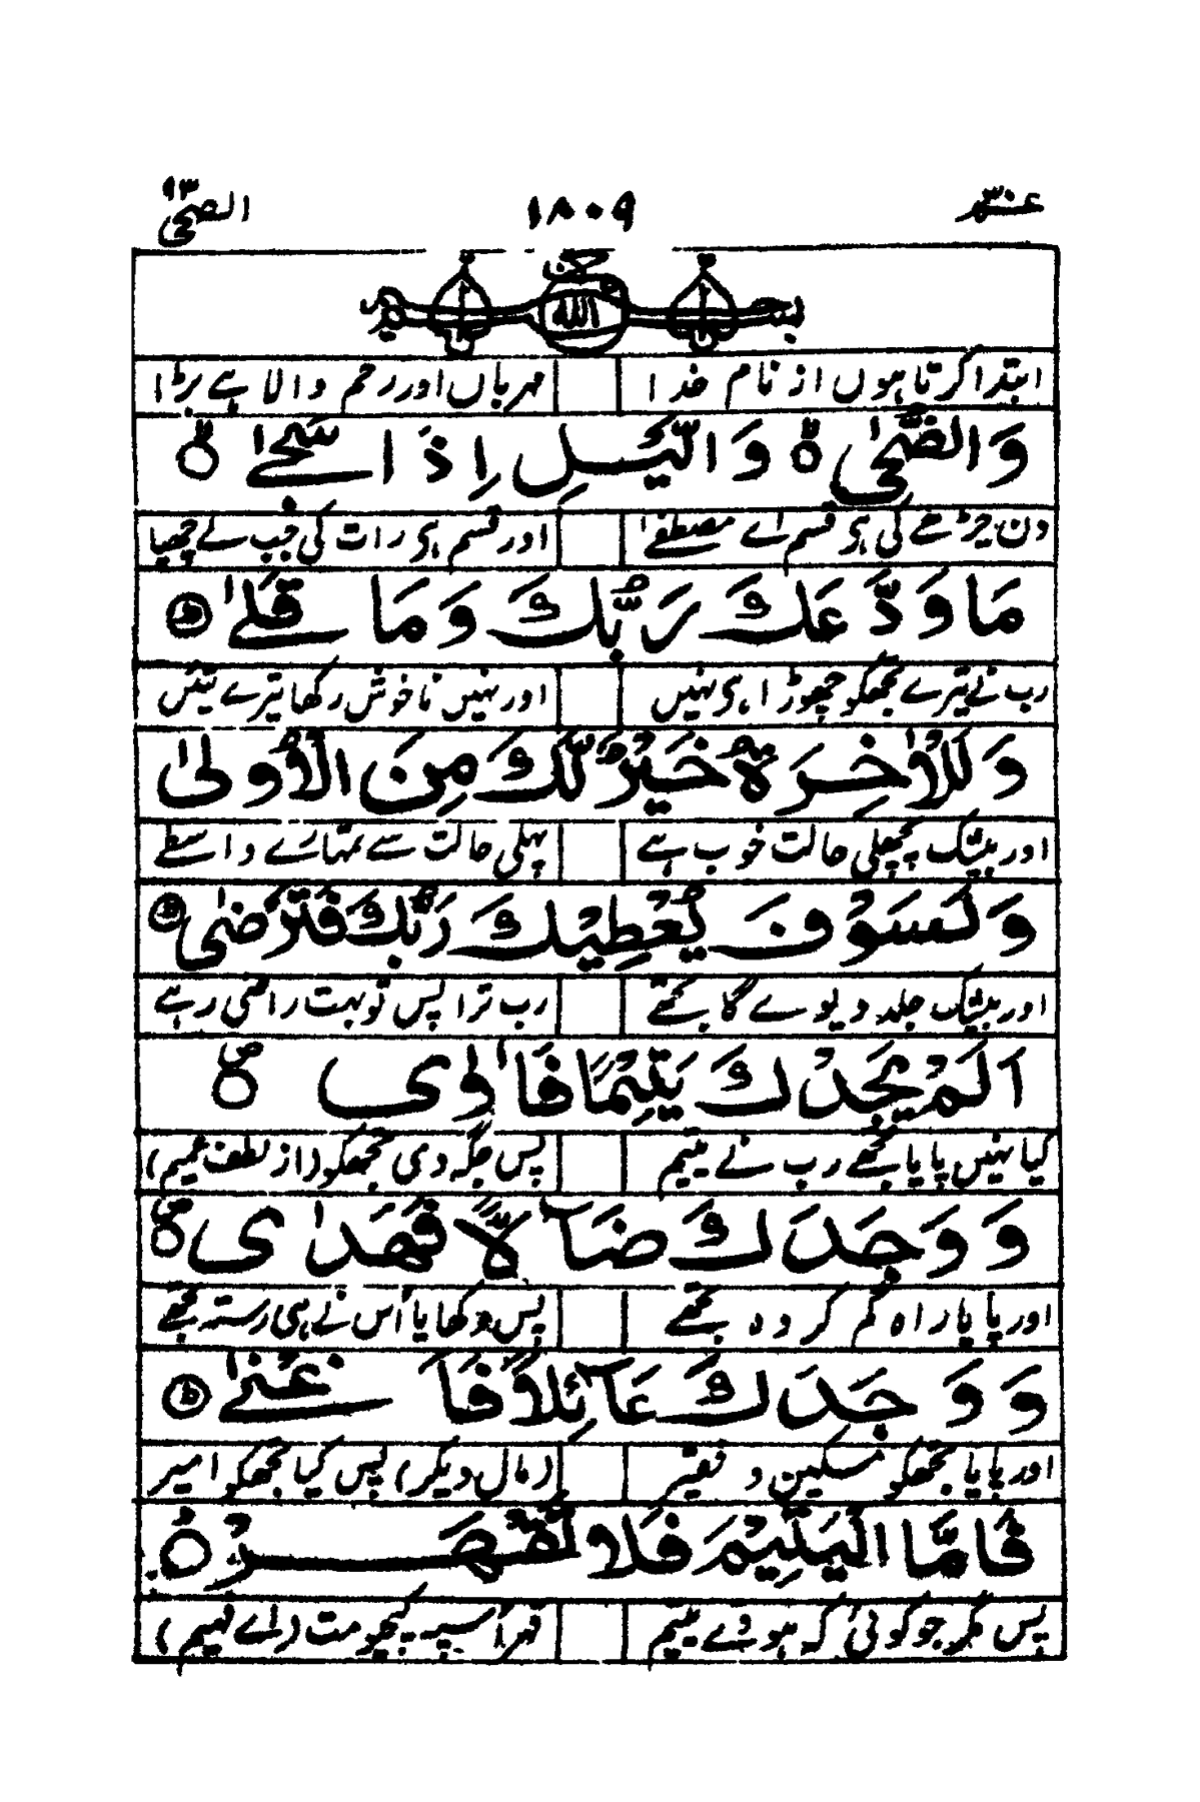 عمّ ۳۰ ۱۸۰۹ الضحیٰ ۹۳
بسم الله الرحمن الرحیم
ابتدا کرتا ہوں از نام خدا مہرباں اور رحم والا ہے بڑا
وَالضُّحٰی ۙ وَالَّیْلِ اِذَا سَجٰی ۙ
دن چڑھے کی ہی قسم اے مصطفےٰ اور قسم ہی رات کی جب لے چھپا
مَا وَدَّعَكَ رَبُّكَ وَمَا قَلٰی ؕ
رب نے تیرے تجھکو چھوڑا ہی نہیں اور نہیں ناخوش رکھا تیرے تئیں
وَلَلْاٰخِرَةُ خَیْرٌ لَّكَ مِنَ الْاُوْلٰی
اور بیشک پچھلی حالت خوب ہے پہلی حالت سے تمہارے واسطے
وَلَسَوْفَ یُعْطِیْكَ رَبُّكَ فَتَرْضٰی ؕ
اور بیشک جلد دیوے گا تجھے رب ترا پس تو بہت راضی رہے
اَلَمْ یَجِدْكَ یَتِیْمًا فَاٰوٰی ۪
کیا نہیں پایا تجھے رب نے یتیم پس جگہ دی تجھکو (از لطف عمیم)
وَوَجَدَكَ ضَآلًّا فَهَدٰی ۪
اور پایا راہ گم کردہ تجھے پس دکھایا اُس نے ہی رستہ تجھے
وَوَجَدَكَ عَآئِلًا فَاَغْنٰی ؕ
اور پایا تجھکو مسکین و فقیر (مال دیکر) پس کیا تجھکو امیر
فَاَمَّا الْیَتِیْمَ فَلَا تَقْهَرْ ؕ
پس مگر جو کوئی کہ ہووے یتیم قہر اُسپہ کیجیو مت (اے فہیم)